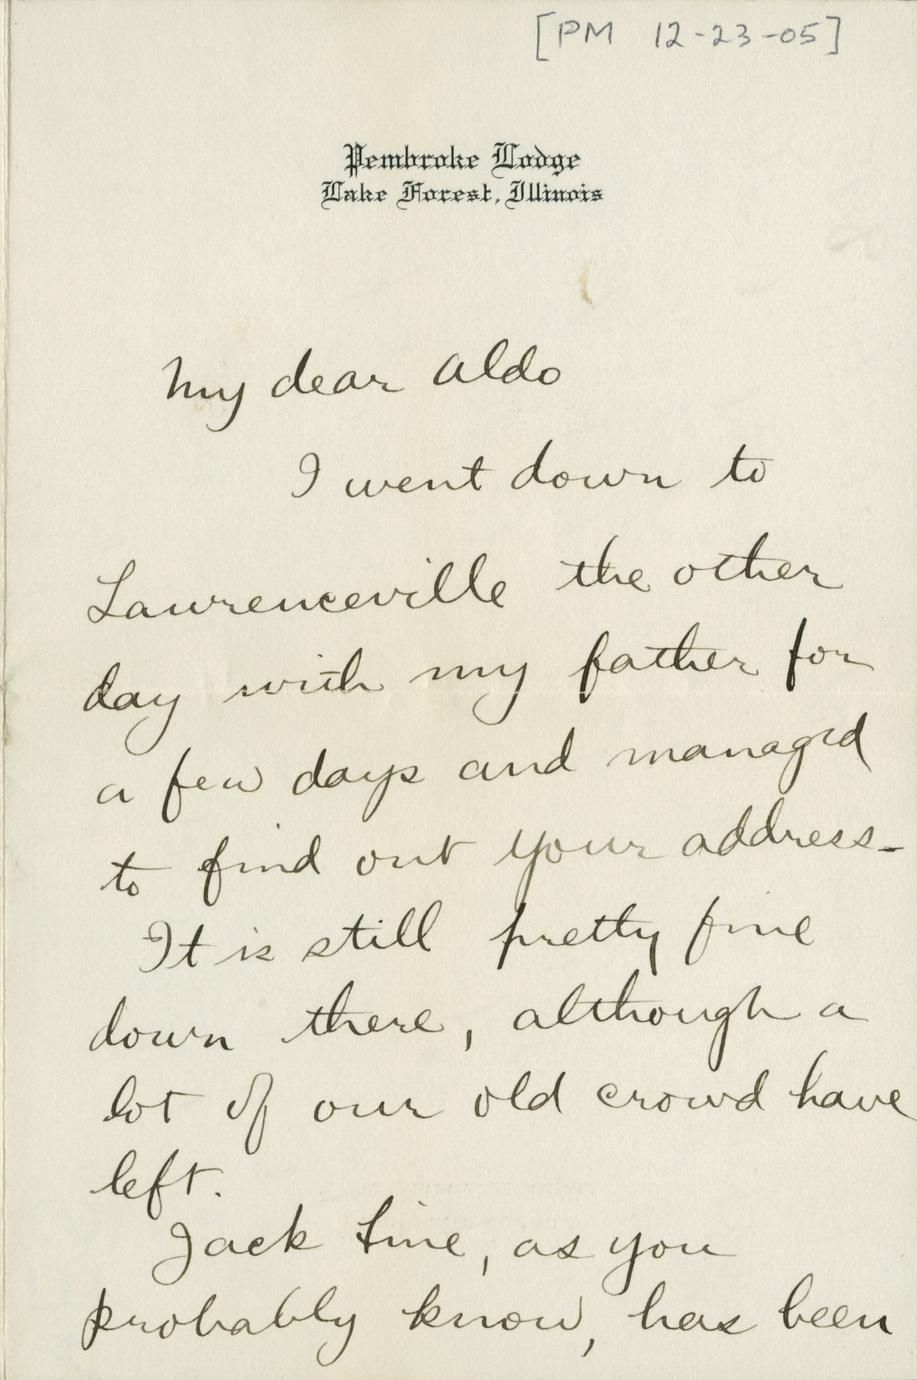 [PM 12-23-05]
Pembroke Lodge
Lake Forest, Illinois
My dear Aldo
I went down to
Lawrenceville the other
day with my father for
a few days and managed
to find out your address-
It is still pretty fine
down there, although a
lot of our old crowd have
left.
Jack Line, as you
probably know, has been